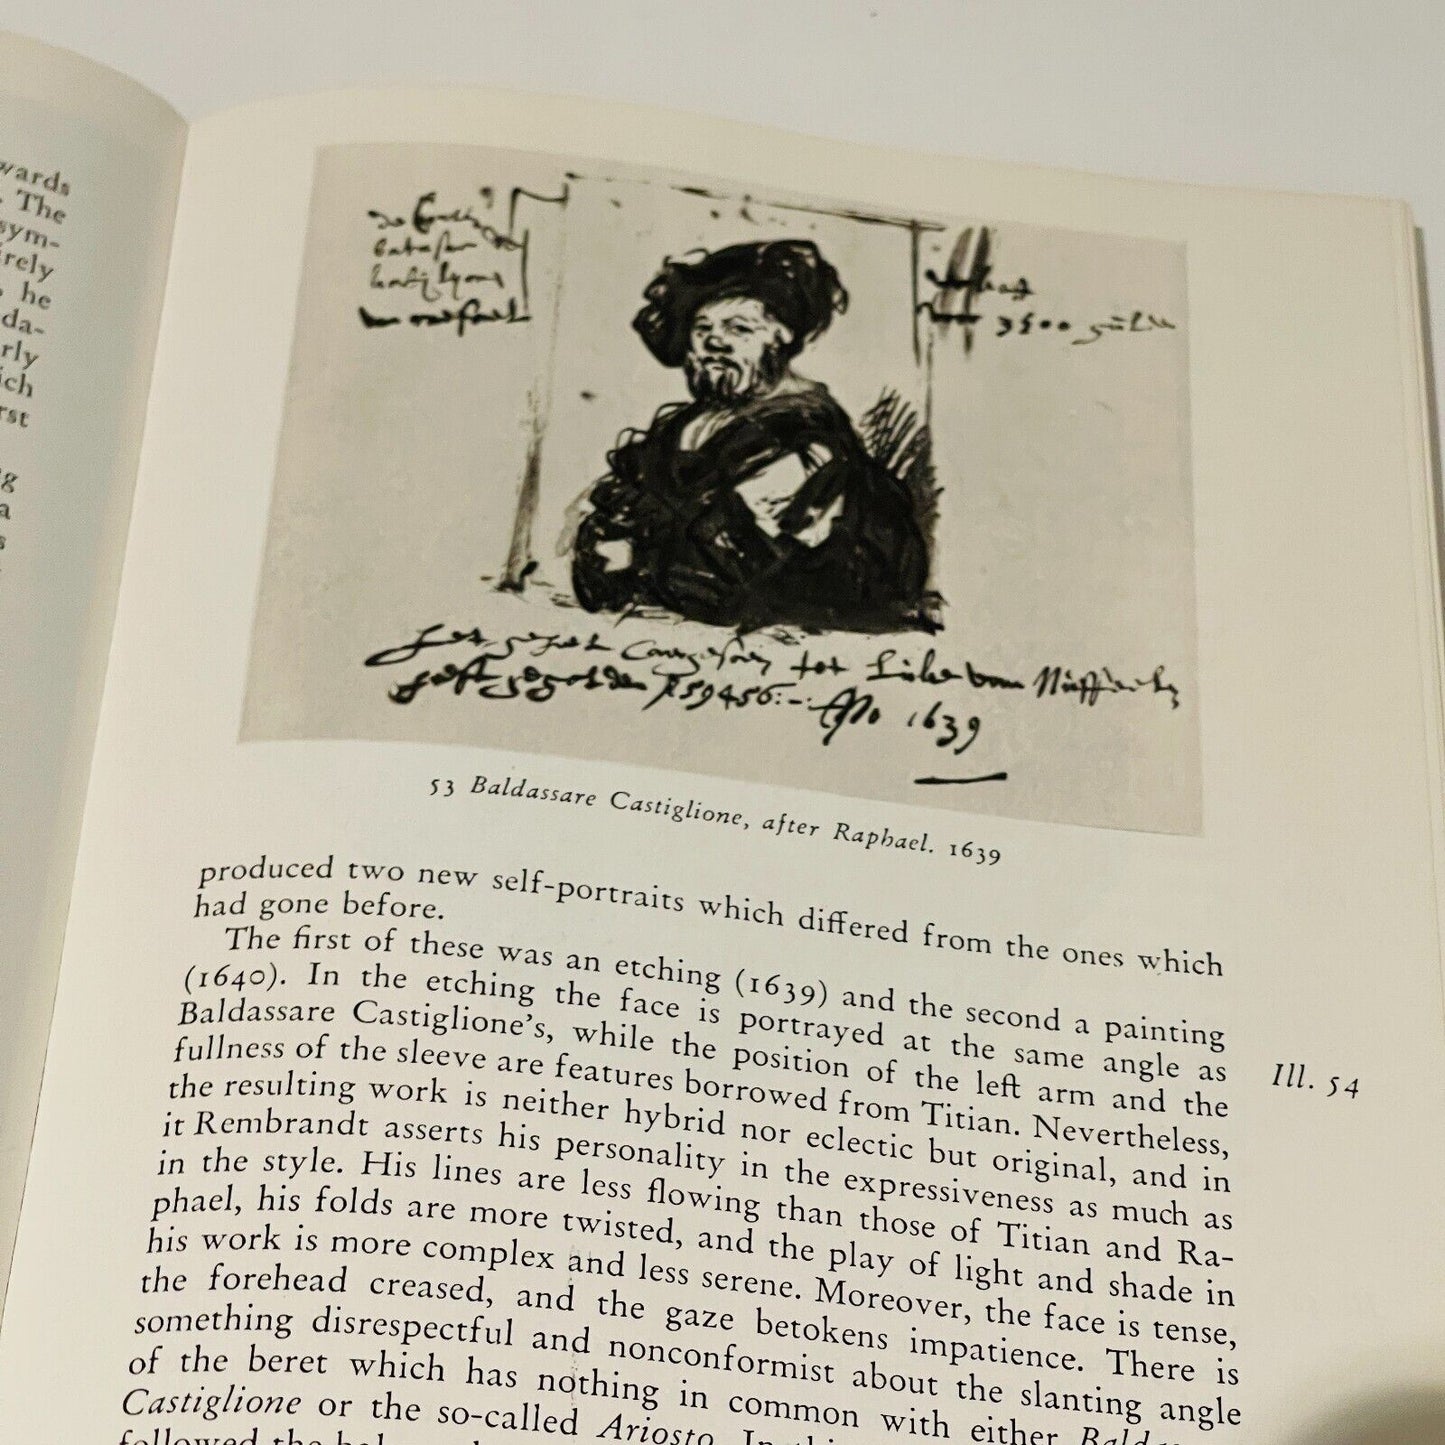 wards
. The
sym-
irely
he
da-
rly
ich
rst
g
a
s
batasar
van raefael
3500 gulden
het geheel
tot Luke van Nuffeelen
heeft gegolden f 59456:- Ano 1639
53 Baldassare Castiglione, after Raphael. 1639
produced two new self-portraits which differed from the ones which
had gone before.
The first of these was an etching (1639) and the second a painting
(1640). In the etching the face is portrayed at the same angle as
Baldassare Castiglione's, while the position of the left arm and the
fullness of the sleeve are features borrowed from Titian. Nevertheless,
the resulting work is neither hybrid nor eclectic but original, and in
it Rembrandt asserts his personality in the expressiveness as much as
in the style. His lines are less flowing than those of Titian and Ra-
phael, his folds are more twisted, and the play of light and shade in
his work is more complex and less serene. Moreover, the face is tense,
the forehead creased, and the gaze betokens impatience. There is
something disrespectful and nonconformist about the slanting angle
of the beret which has nothing in common with either Balda
Castiglione or the so-called Ariosto. In thi
followed the
Ill. 54